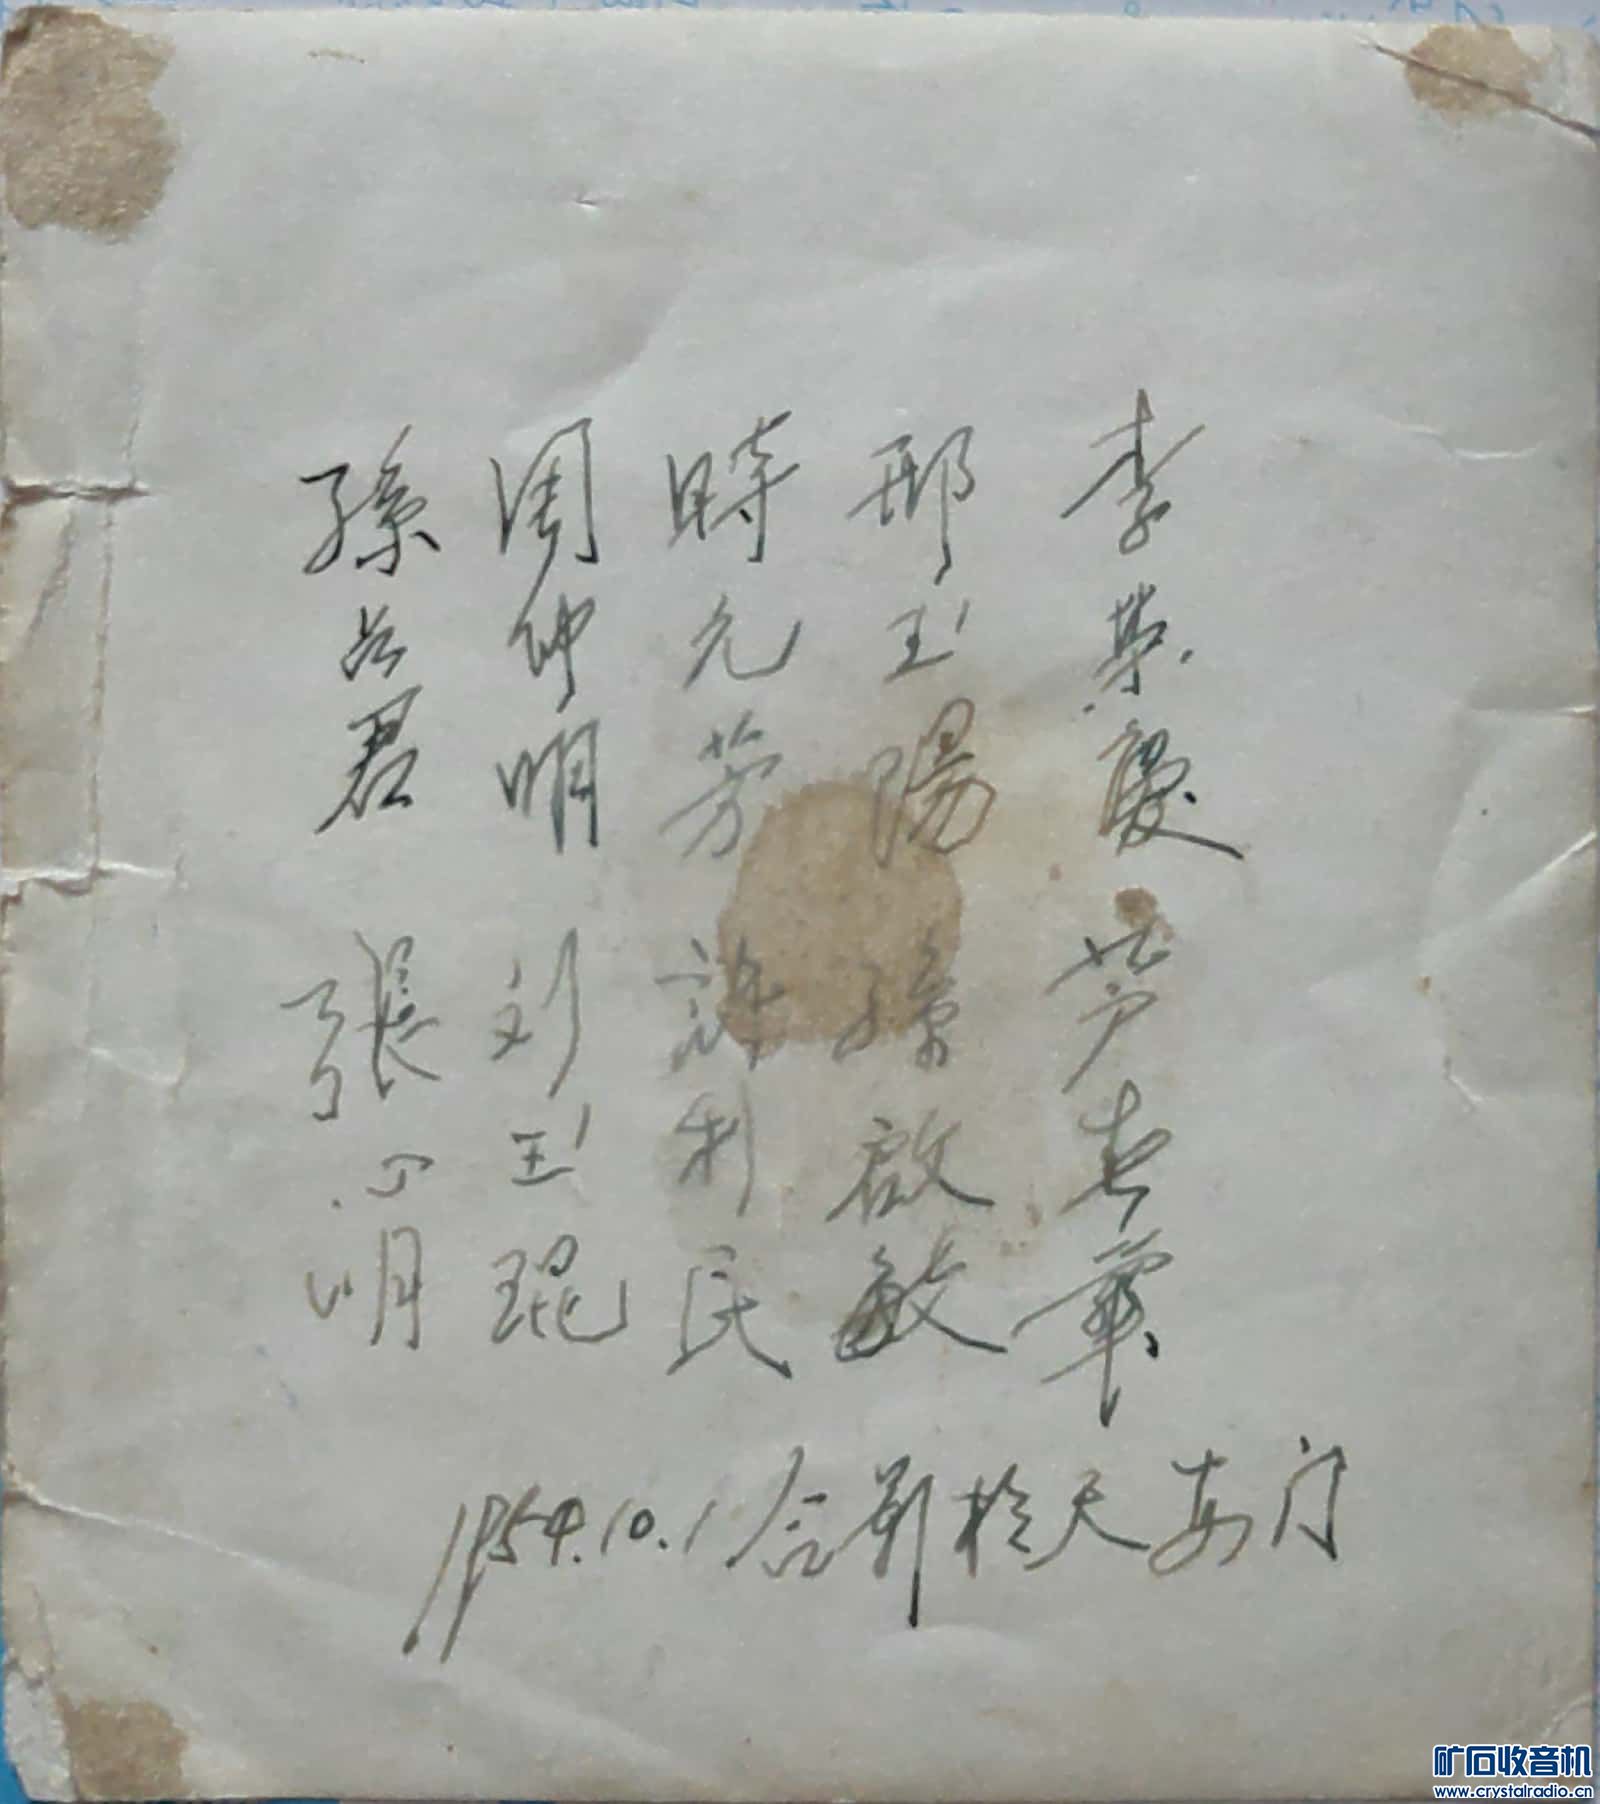 李荣庆 芦春華
邢玉陽 孫啟敏
時元芳 許利民
周仲明 刘玉琨
孫占君 張 明
1954.10.1 合影於天安门
矿石收音机
www.crystalradio.cn